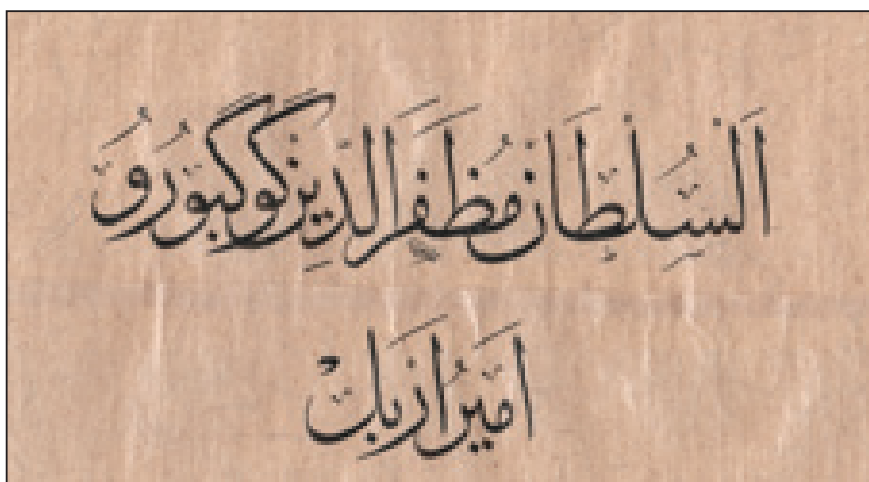 اَلسُّلْطَان مُظَفَرَالدِّين كوكبورُو
اَمَيرُ ازبك